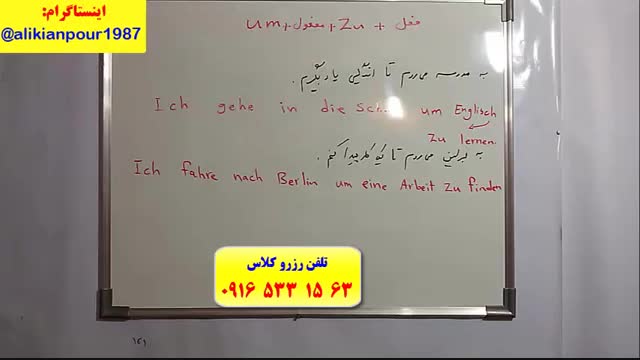 اینستاگرام:
@alikianpour1987
um + مفعول + zu + فعل
به مدرسه می روم تا انگلیسی یاد بگیرم.
Ich gehe in die Sch um Englisch
zu lernen.
به برلین می روم تا یک کار پیدا کنم.
Ich fahre nach Berlin um eine Arbeit zu finden
تلفن رزرو کلاس
۰۹۱۶ ۵۳۳ ۱۵ ۶۳